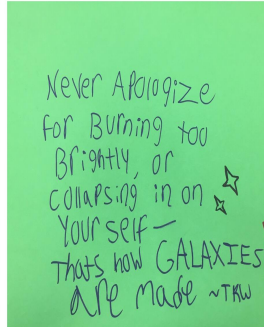 Never Apologize
for Burning too
Brightly, or
collapsing in on
Your self—
Thats how GALAXIES
are made ~TKW